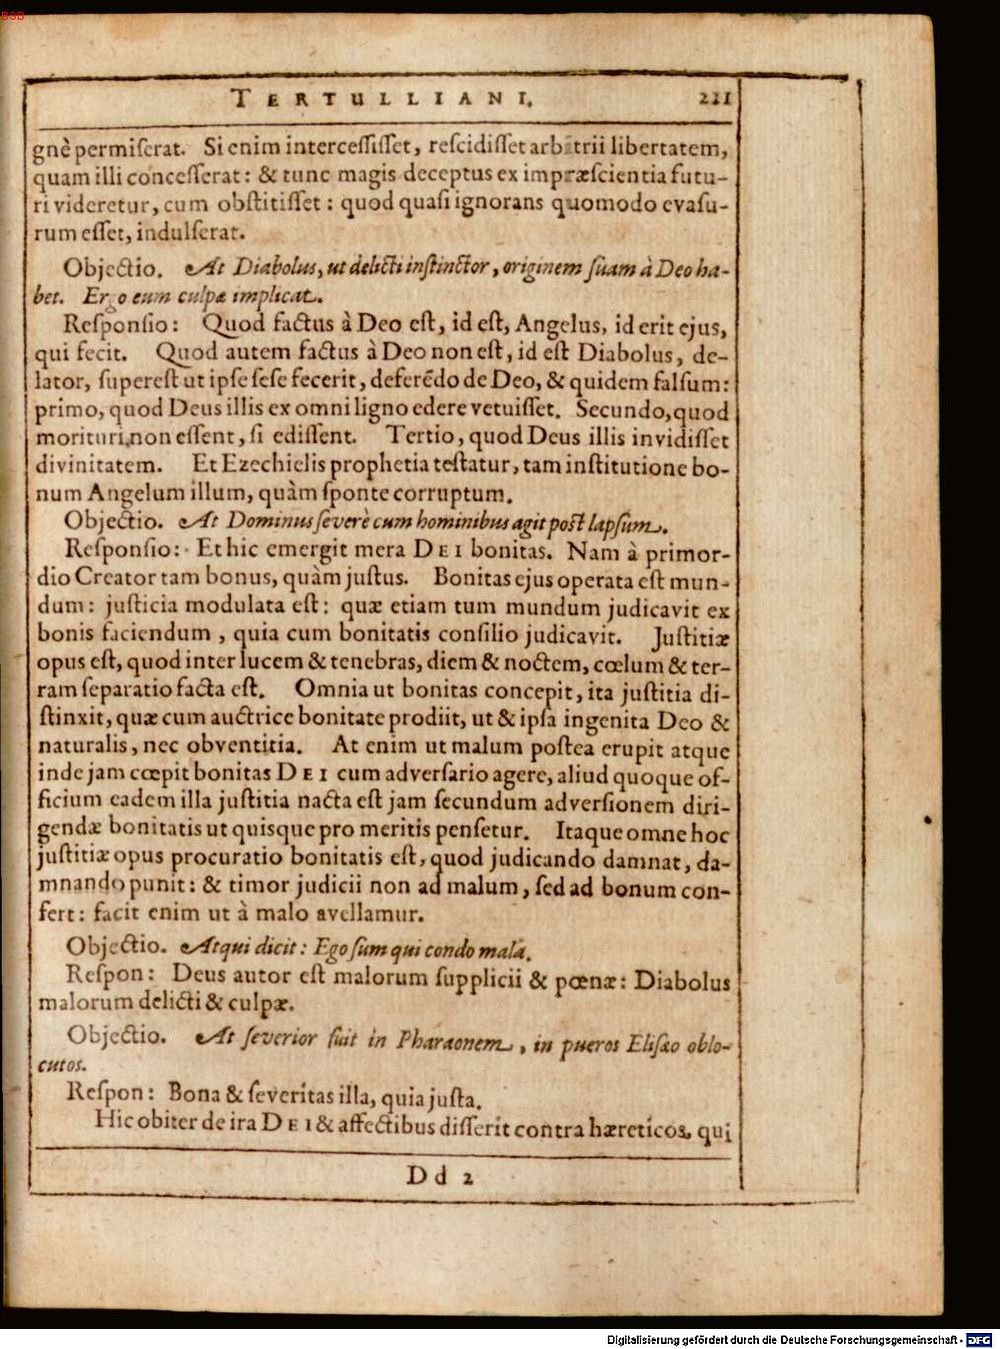 BSB
TERTULLIANI. 221
gnè permiserat. Si enim intercessisset, rescidisset arbitrii libertatem,
quam illi concesserat: & tunc magis deceptus ex impræscientia futu-
ri videretur, cum obstitisset: quod quasi ignorans quomodo evasu-
rum esset, indulserat.
Objectio. At Diabolus, ut delicti instinctor, originem suam à Deo ha-
bet. Ergo eum culpæ implicat.
Responsio: Quod factus à Deo est, id est, Angelus, id erit ejus,
qui fecit. Quod autem factus à Deo non est, id est Diabolus, de-
lator, superest ut ipse sese fecerit, deferēdo de Deo, & quidem falsum:
primo, quod Deus illis ex omni ligno edere vetuisset. Secundo, quod
morituri non essent, si edissent. Tertio, quod Deus illis invidisset
divinitatem. Et Ezechielis prophetia testatur, tam institutione bo-
num Angelum illum, quàm sponte corruptum.
Objectio. At Dominus severè cum hominibus agit post lapsum.
Responsio: Et hic emergit mera DEI bonitas. Nam à primor-
dio Creator tam bonus, quàm justus. Bonitas ejus operata est mun-
dum: justicia modulata est: quæ etiam tum mundum judicavit ex
bonis faciendum, quia cum bonitatis consilio judicavit. Justitiæ
opus est, quod inter lucem & tenebras, diem & noctem, cœlum & ter-
ram separatio facta est. Omnia ut bonitas concepit, ita justitia di-
stinxit, quæ cum auctrice bonitate prodiit, ut & ipsa ingenita Deo &
naturalis, nec obventitia. At enim ut malum postea erupit atque
inde jam cœpit bonitas DEI cum adversario agere, aliud quoque of-
ficium eadem illa justitia nacta est jam secundum adversionem diri-
gendæ bonitatis ut quisque pro meritis pensetur. Itaque omne hoc
justitiæ opus procuratio bonitatis est, quod judicando damnat, da-
mnando punit: & timor judicii non ad malum, sed ad bonum con-
fert: facit enim ut à malo avellamur.
Objectio. Atqui dicit: Ego sum qui condo mala.
Respon: Deus autor est malorum supplicii & pœnæ: Diabolus
malorum delicti & culpæ.
Objectio. At severior fuit in Pharaonem, in pueros Elisæo oblo-
cutos.
Respon: Bona & severitas illa, quia justa.
Hic obiter de ira DEI & affectibus disserit contra hæreticos, qui
Dd 2
Digitalisierung gefördert durch die Deutsche Forschungsgemeinschaft - DFG